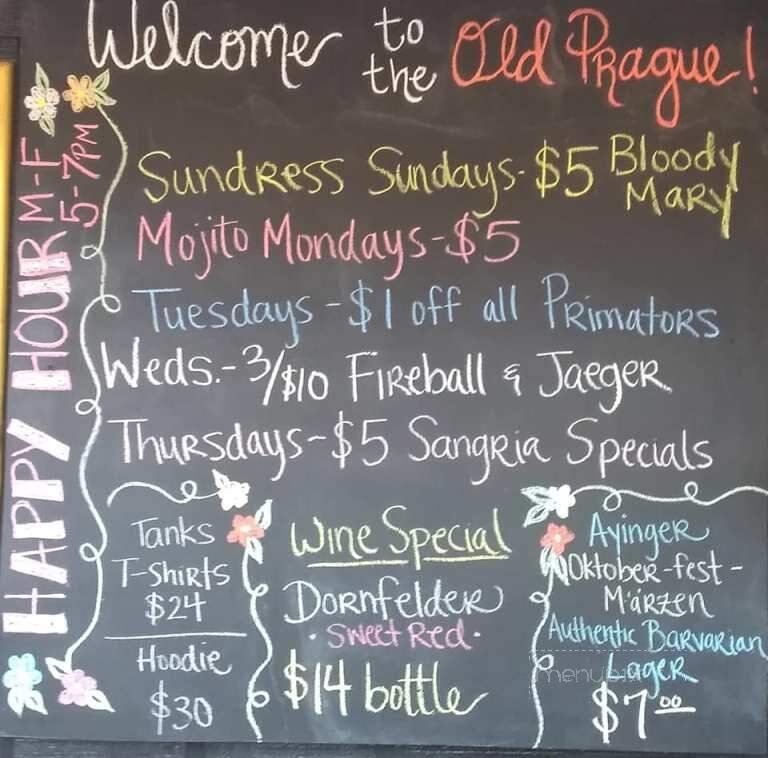 Welcome to the Old Prague!
HAPPY HOUR M-F 5-7PM
Sundress Sundays- $5 Bloody Mary
Mojito Mondays-$5
Tuesdays - $1 off all Primators
Weds.- 3/$10 Fireball & Jaeger
Thursdays-$5 Sangria Specials
Tanks
T-Shirts
$24
Hoodie
$30
Wine Special
Dornfelder
· Sweet Red ·
$14 bottle
Ayinger
Oktober-fest-
Märzen
Authentic Barvarian
Lager
$7.00